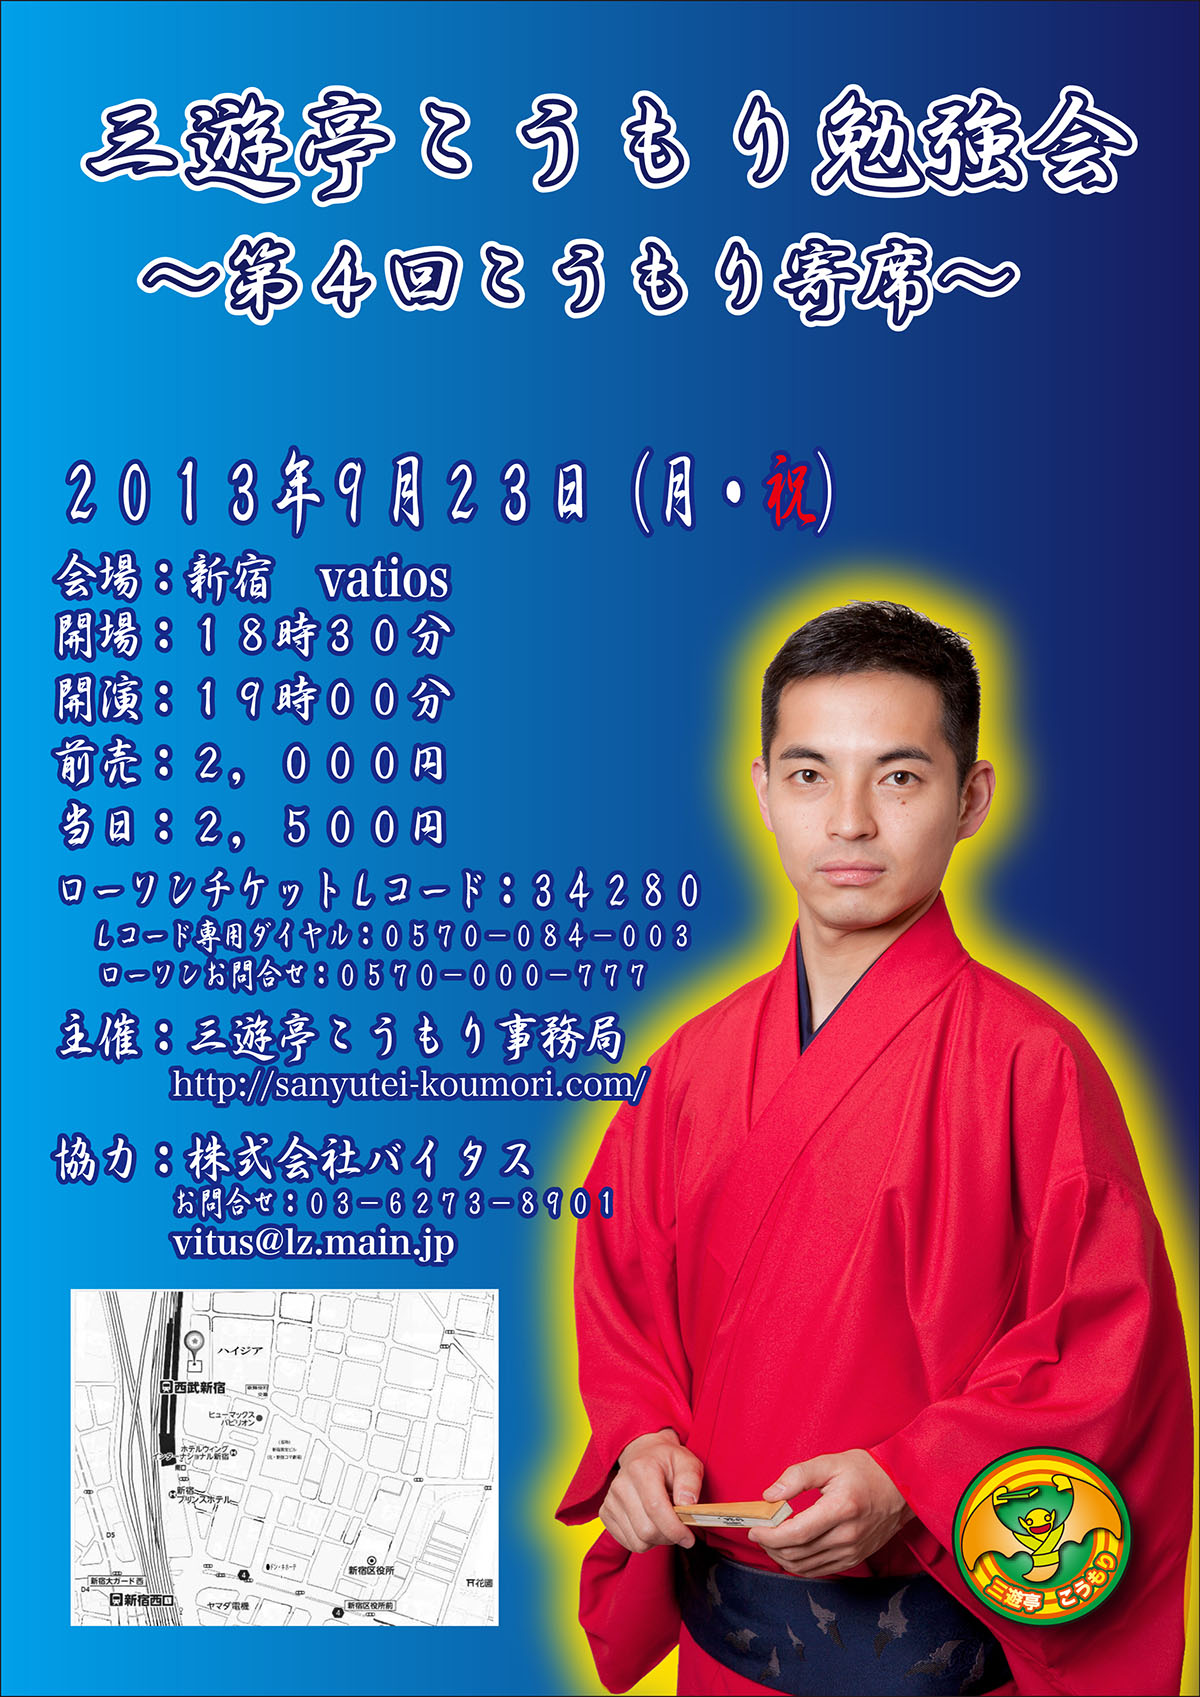 三遊亭こうもり勉強会
～第４回こうもり寄席～
２０１３年９月２３日（月・祝）
会場：新宿　vatios
開場：１８時３０分
開演：１９時００分
前売：２，０００円
当日：２，５００円
ローソンチケットLコード：３４２８０
Lコード専用ダイヤル：０５７０－０８４－００３
ローソンお問合せ：０５７０－０００－７７７
主催：三遊亭こうもり事務局
http://sanyutei-koumori.com/
協力：株式会社バイタス
お問合せ：０３－６２７３－８９０１
vitus@lz.main.jp
ハイジア
西武新宿
ヒューマックス
パビリオン
ホテルウィング
インターナショナル新宿
南口
新宿
プリンスホテル
D5
ドン・キホーテ
新宿区役所
新宿大ガード西
D4
新宿西口
ヤマダ電機
4
新宿区役所前
4
花園
三遊亭　こうもり